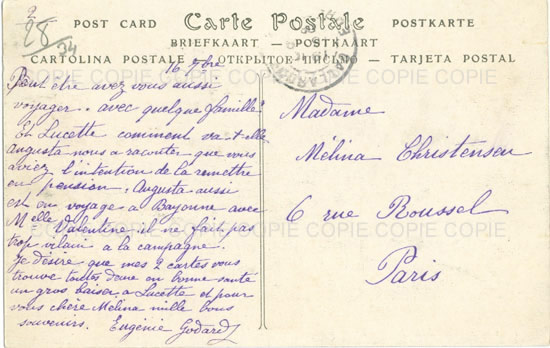 2
28
34
POST CARD Carte Postale POSTKARTE
BRIEFKAART — POSTKAART
CARTOLINA POSTALE — ОТКРЫТОЕ ПИСЬМО — TARJETA POSTAL
16 7bre
Peut être avez vous aussi
voyager avec quelque famille
Et Lucette comment va t elle
Augusta nous a raconter que vous
aviez l'intention de la remettre
en pension. Augusta aussi
est en voyage a Bayonne avec
Melle Valentine il ne fait pas
trop vilain a la campagne.
Je désire que mes 2 cartes vous
trouve toutes deux en bonne santé
un gros baiser a Lucette et pour
vous chère Mélina mille bons
souvenirs. Eugénie Godard
Madame
Mélina Christensen
6 rue Roussel
Paris
COPIE COPIE COPIE COPIE COPIE COPIE